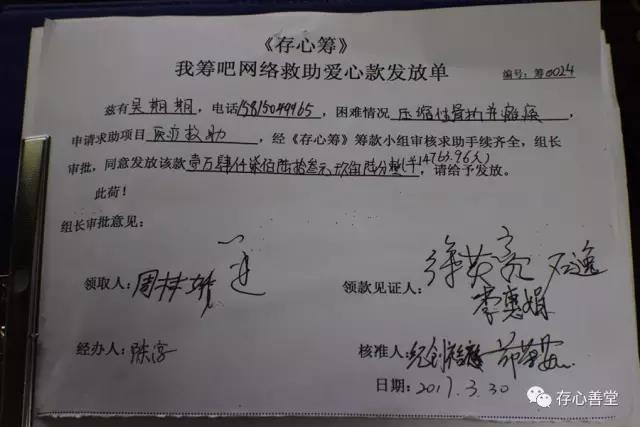 《存心筹》
我筹吧网络救助爱心款发放单
编号：筹0024
兹有吴期期，电话15815049965，困难情况压缩性骨折并瘫痪，
申请求助项目医疗救助，经《存心筹》筹款小组审核求助手续齐全，组长
审批，同意发放该款壹万肆仟柒佰陆拾叁元玖角陆分整(¥14763.96元)，请给予发放。
此荷！
组长审批意见：
领取人：周林
领款见证人：徐英亮
李惠娟
经办人：陈淳
核准人：
日期：2017.3.30
存心善堂